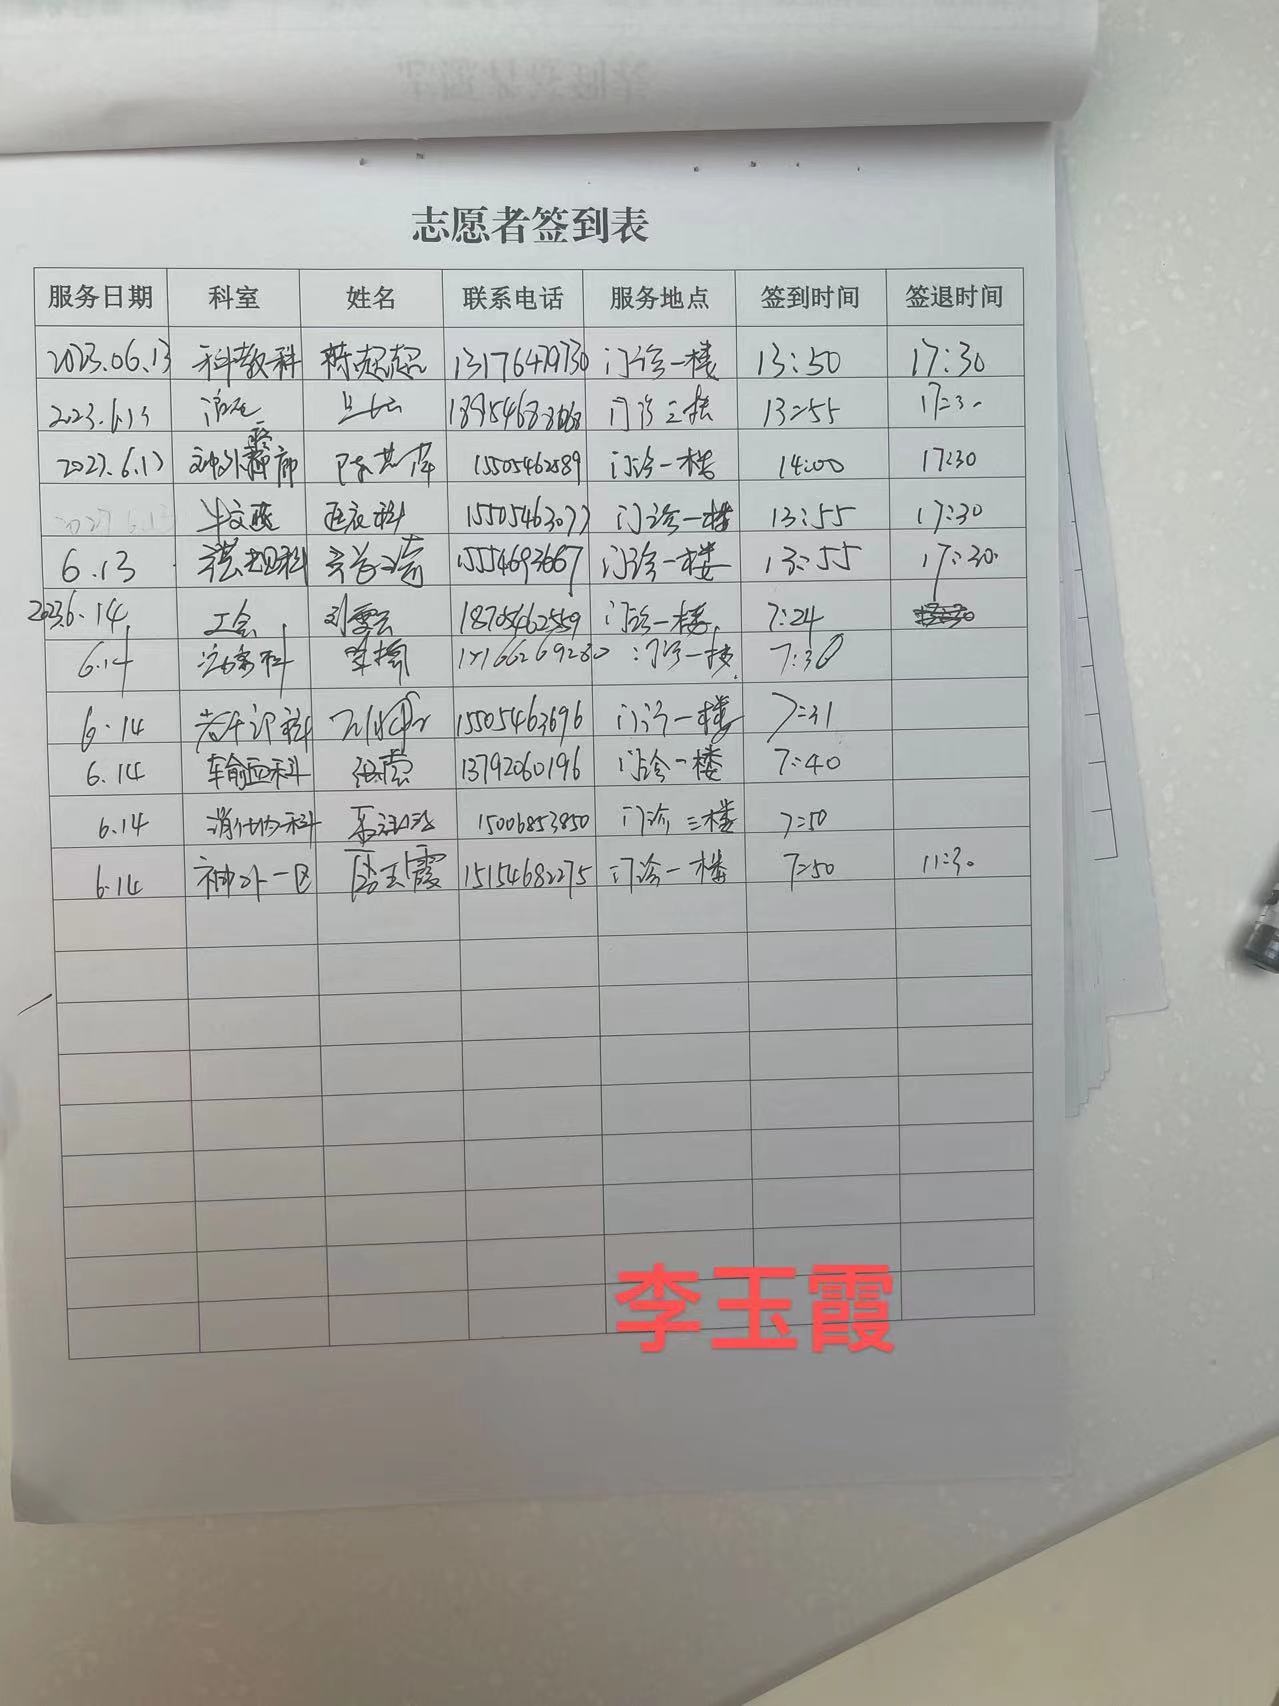 志愿者签到表
服务日期 科室 姓名 联系电话 服务地点 签到时间 签退时间
2023.06.13 科教科 陈超超 13176479730 门诊一楼 13:50 17:30
2023.6.13 门诊三楼 13:55 17:3
2023.6.13 15505462589 门诊一楼 14:00 17:30
2023.6.13 15505463077 门诊一楼 13:55 17:30
6.13 15554693667 门诊一楼 13:55 17:30
2023.6.14 工会 刘雪云 18705462559 门诊一楼 7:24
6.14 门诊一楼 7:30
6.14 15505463696 门诊一楼 7:31
6.14 输血科 13792060196 门诊一楼 7:40
6.14 消化内科 15006853850 门诊三楼 7:50
6.14 神外一区 李玉霞 15154682275 门诊一楼 7:50 11:30
李玉霞